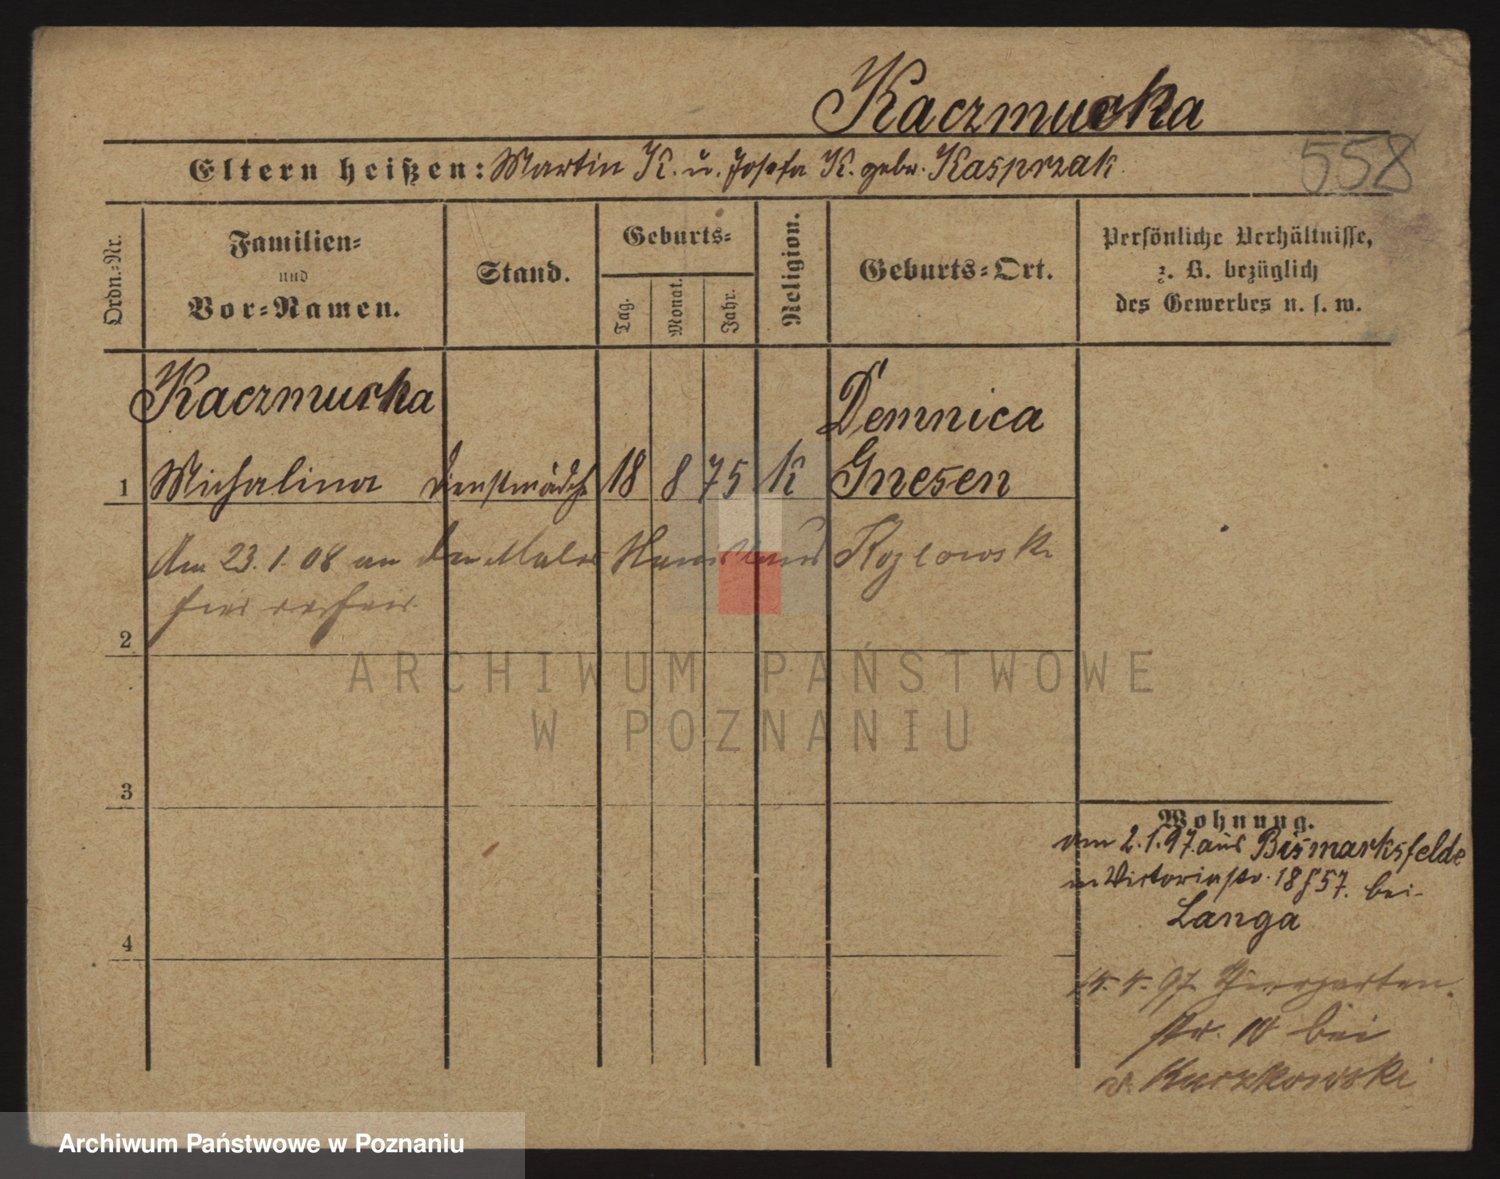 Kaczmurka
Eltern heißen: Martin K. u. Josefa K. gebr. Kasprzak
558
Ordn.-Nr.
Familien-
und
Vor-Namen.
Stand.
Geburts-
Tag.
Monat.
Jahr.
Religion.
Geburts-Ort.
Persönliche Verhältnisse,
z. B. bezüglich
des Gewerbes u. s. w.
Kaczmurka Demnica
1 Michalina Dienstmädch 18 8 75 K Gnesen
Am 23.1.08 an den Maler Kozlowski
2
ARCHIWUM PAŃSTWOWE
W POZNANIU
3
4
Wohnung.
am 2.1.97 aus Bismarksfelde
in Victoriastr. 18 bei
Langa
97 Thiergarten
str. 10 bei
v. Kurzkowski
Archiwum Państwowe w Poznaniu